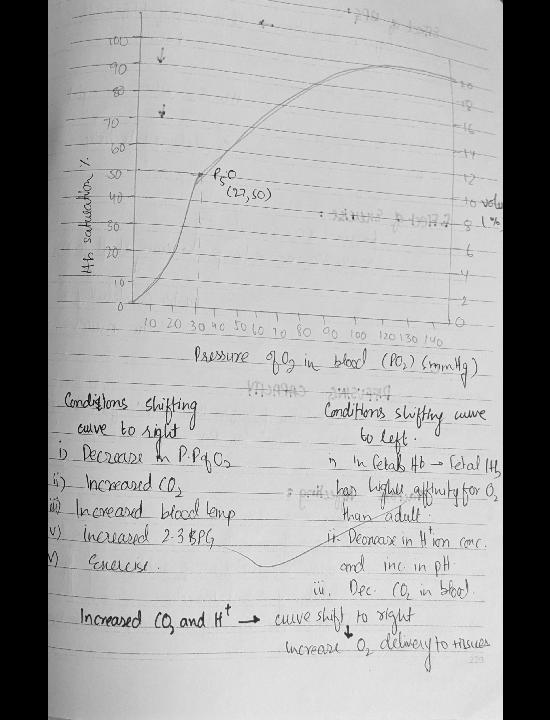 100
90
80
70
60
50
40
30
20
10
0
Hb saturation %
P50
(27,50)
20
18
16
14
12
10
8
6
4
2
0
volu
(%
10 20 30 40 50 60 70 80 90 100 120 130 140
Pressure of O2 in blood (PO2) (mmHg)
Conditions shifting
curve to right
i) Decrease in P.P of O2
ii) Increased CO2
iii) Increased blood temp
v) increased 2-3 BPG
v) Exercise.
Conditions shifting curve
to left.
in fetals Hb → Fetal Hb
has higher affinity for O2
than adult.
ii. Decrease in H+ ion conc.
and inc. in pH
iii. Dec. CO2 in blood.
Increased CO2 and H+ → curve shift to right
↓
increase O2 delivery to tissues